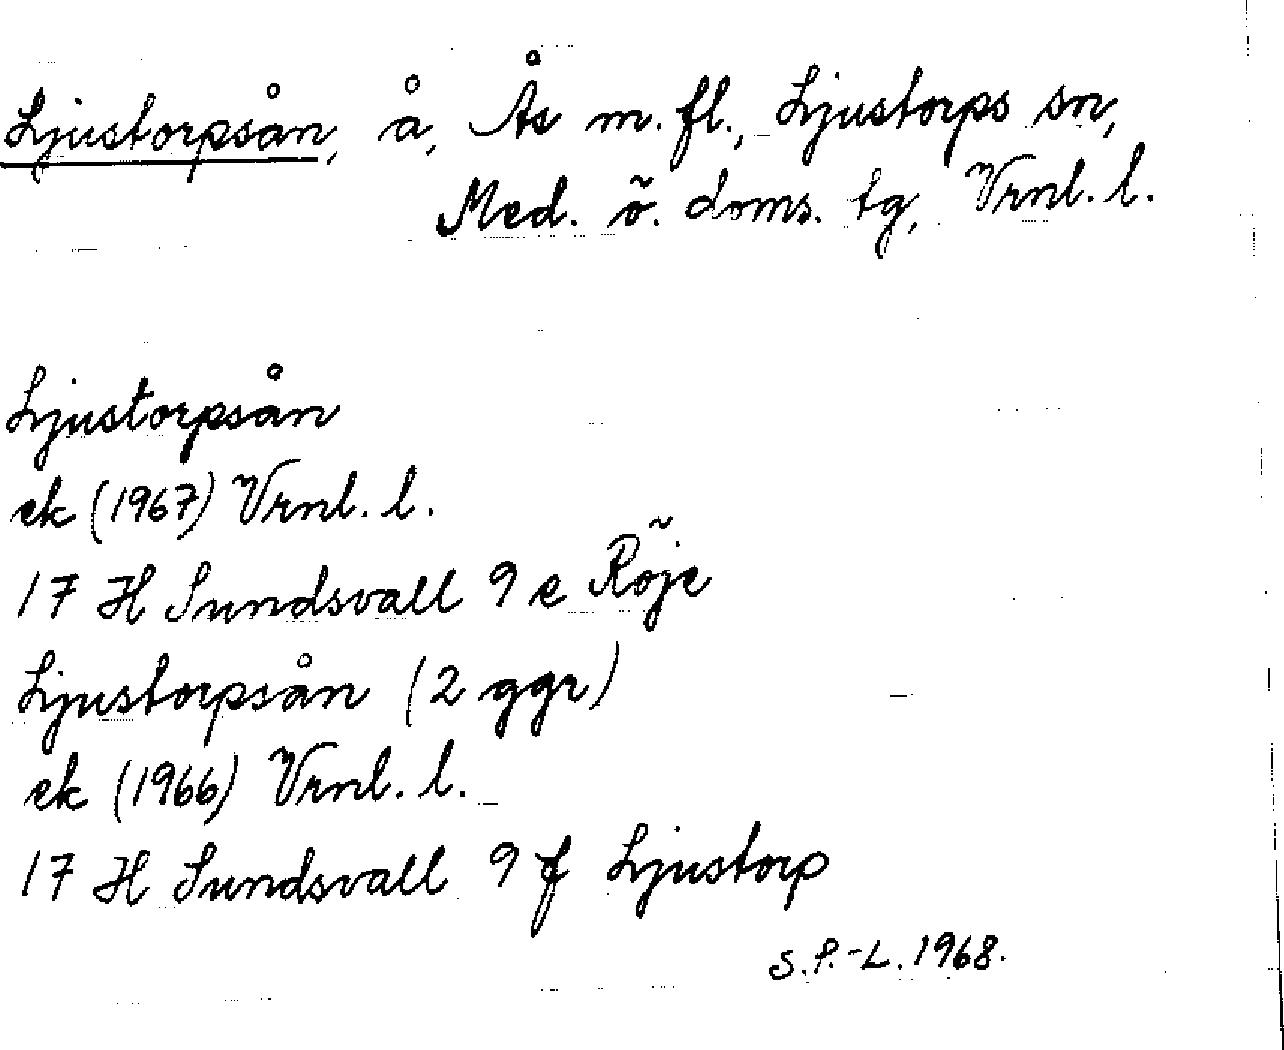 Ljustorpsån, å, Ås m. fl., Ljustorps sn,
Med. ö. doms. tg, Vrnl. l.
Ljustorpsån
ek (1967) Vrnl. l.
17 H Sundsvall 9 e Röje
Ljustorpsån (2 ggr)
ek (1966) Vrnl. l.
17 H Sundsvall 9 f Ljustorp
S.P.-L. 1968.